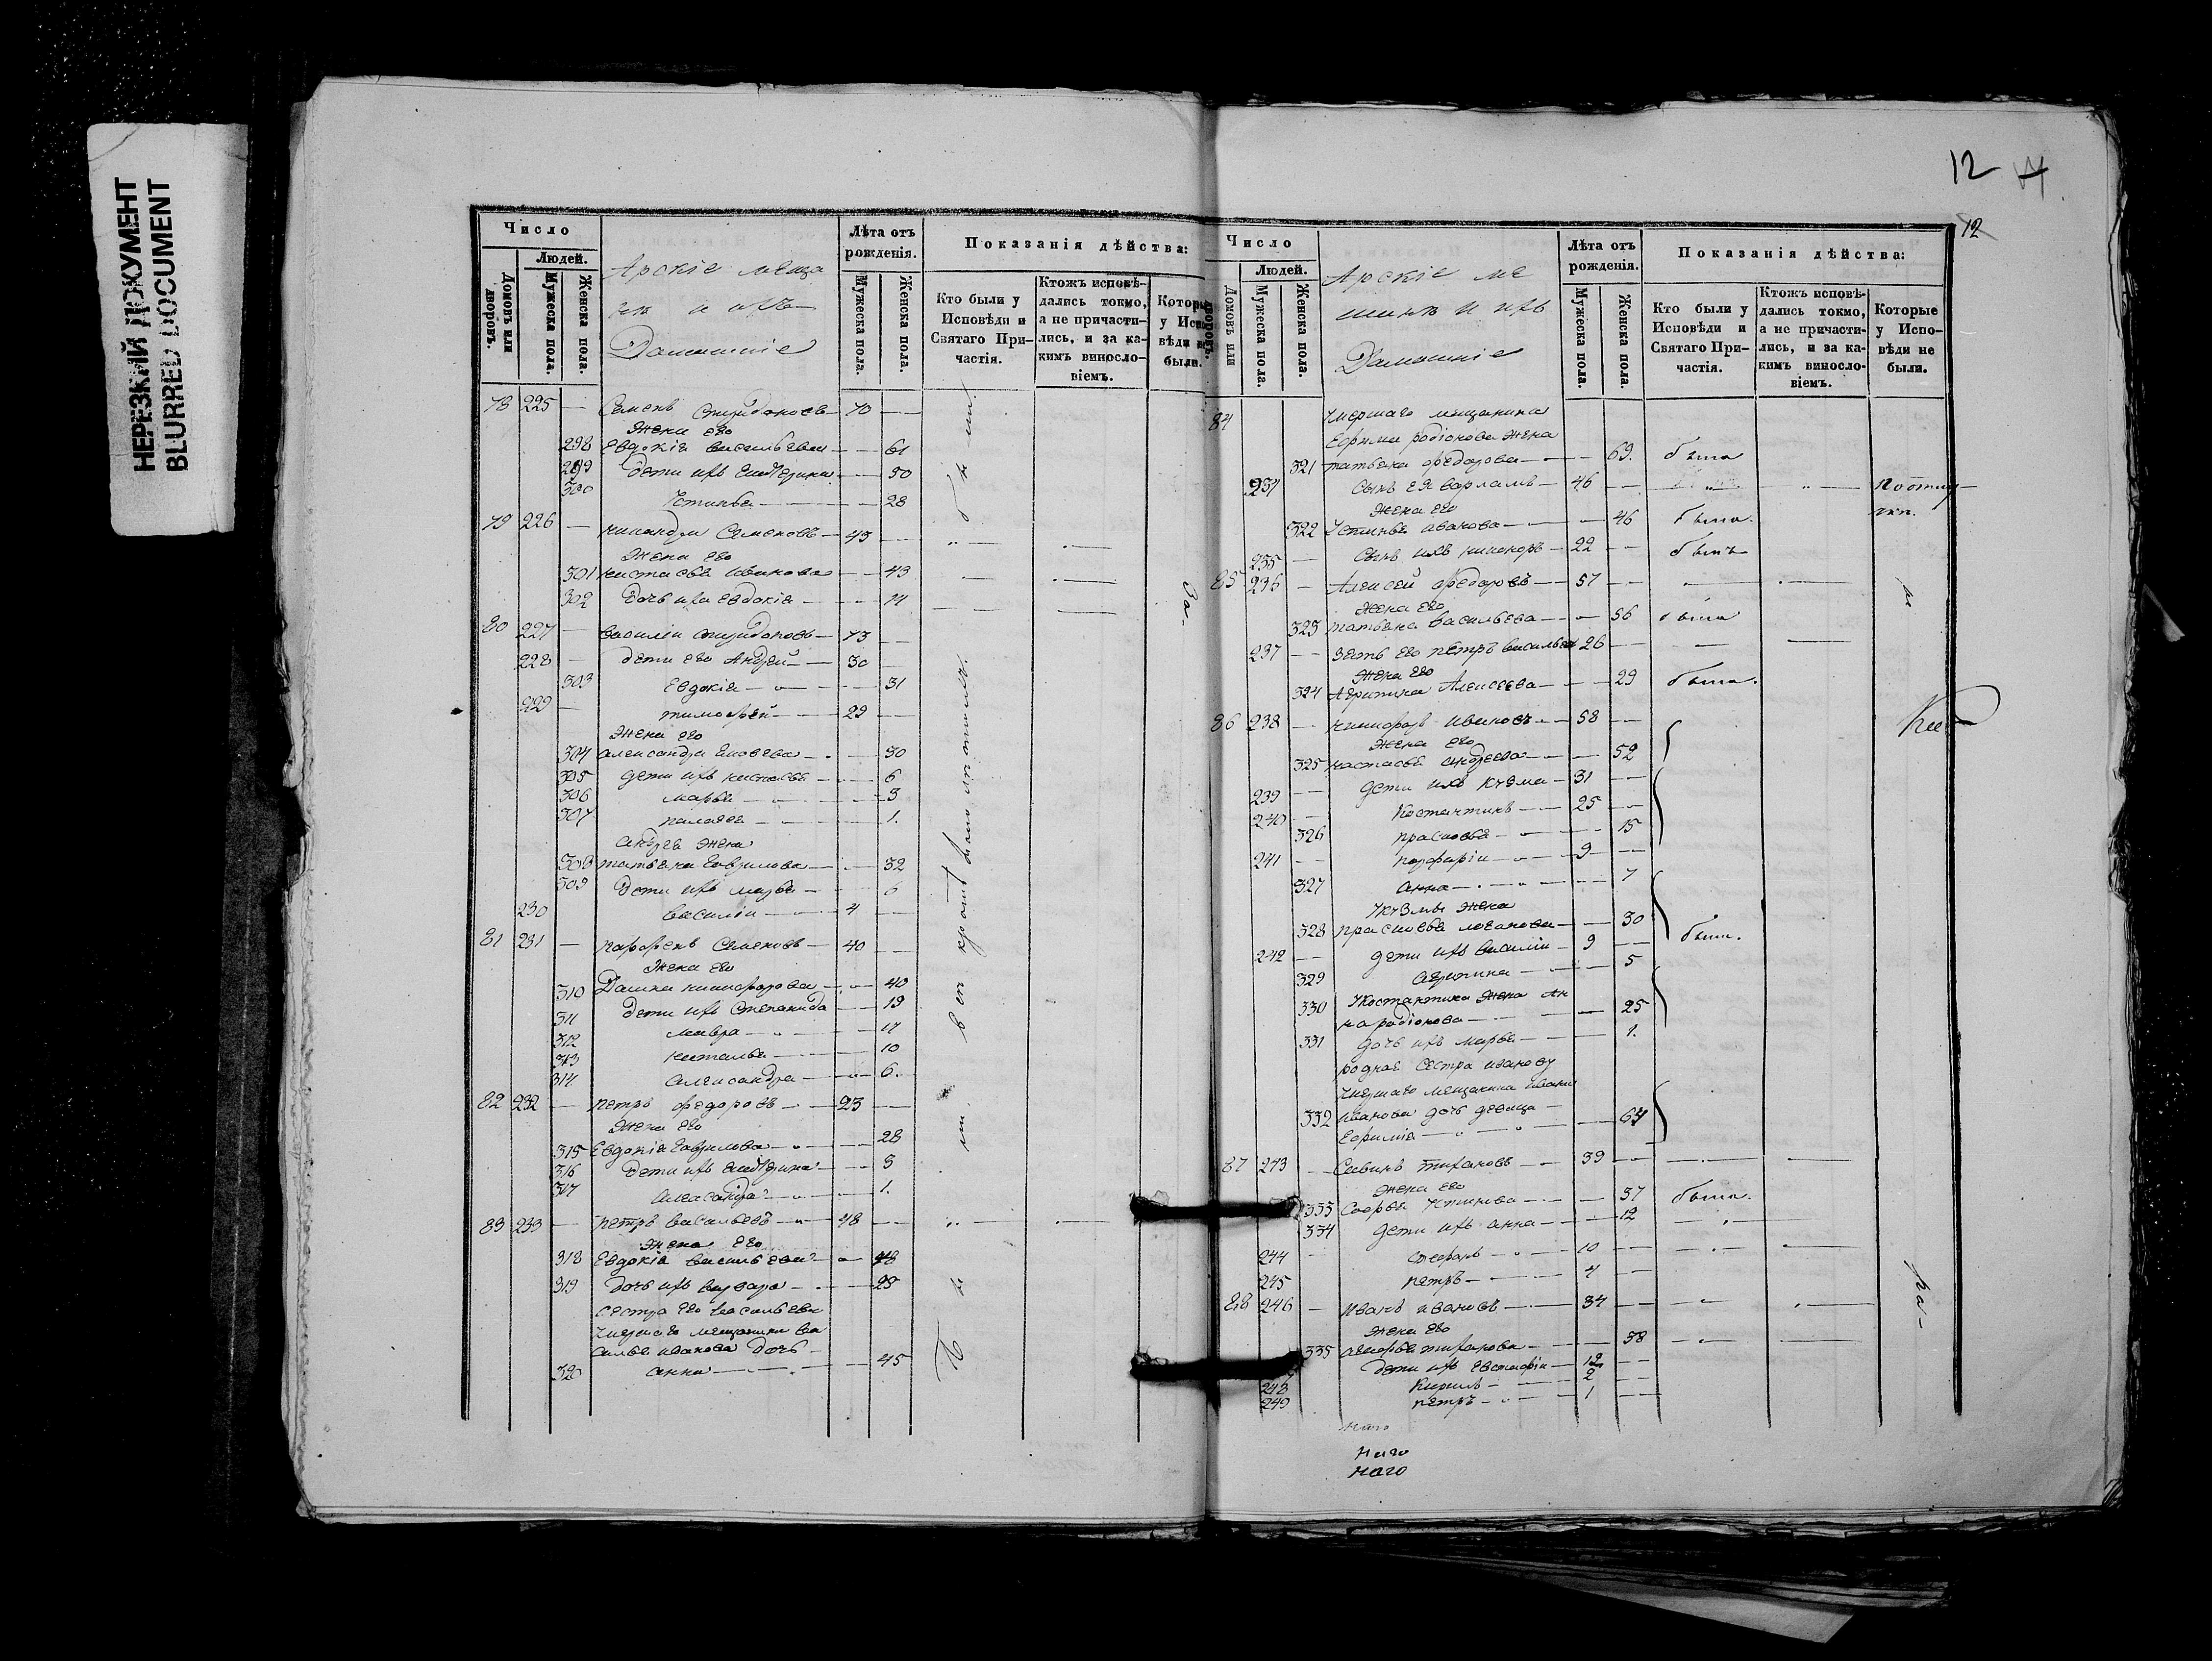 НЕРЕЗКИЙ ДОКУМЕНТ
BLURRED DOCUMENT
Число
Людей.
Домовъ или дворовъ.
Мужеска пола.
Женска пола.
Арскіе меща
не и ихъ
Домашніе
Лѣта отъ рожденія.
Мужеска пола.
Женска пола.
Показанія дѣйства:
Кто были у Исповѣди и Святаго При-частія.
Ктожъ исповѣ-дались токмо, а не причасти-лись, и за ка-кимъ винос­ло-віемъ.
Которые у Испо вѣди не были.
78 225 — Семенъ Спиридоновъ — 70 —
Жена его
298 Евдокія Васильева — 61
299 Дети ихъ Екатерина — 30
300 Устинья — 28
79 226 — Никандръ Семеновъ — 43 —
Жена его
301 Настасья Иванова — 43
302 Дочь ихъ Евдокія — 14
80 227 — Василій Спиридоновъ — 73 —
228 — Дети его Андрей — 30 —
303 Евдокія — 31
229 — Тимофей — 29 —
Жена его
304 Александра — 30
305 Дети ихъ Настасья — 6
306 Марья — 3
307 Палагея — 1.
Андрея жена
308 Татьяна Гаврилова — 32
309 Дети ихъ Марья — 6
230 Василій — 4 —
81 231 — Парфенъ Семеновъ — 40 —
Жена его
310 Домна Никифорова — 40
311 Дети ихъ Степанида — 19
312 Мавра — 17
313 Наталья — 10
314 Александра — 6.
82 232 — Петръ Федоровъ — 23 —
Жена его
315 Евдокія Гаврилова — 28
316 Дети ихъ Екатерина — 3
317 Александра — 1.
83 233 — Петръ Васильевъ — 48 —
Жена его
318 Евдокія Васильева — 48
319 Дочь ихъ Варвара — 23
Сестра его Васильева
Умершаго мещанина Ва
силья Иванова дочь
320 Анна — 45
За
12
12
Число
Людей.
Домовъ или дворовъ.
Мужеска пола.
Женска пола.
Арскіе ме
щане и ихъ
Домашніе
Лѣта отъ рожденія.
Мужеска пола.
Женска пола.
Показанія дѣйства:
Кто были у Исповѣди и Святаго При-частія.
Ктожъ исповѣ-дались токмо, а не причасти-лись, и за ка-кимъ винос­ло-віемъ.
Которые у Испо-вѣди не были.
84 Умершаго мещанина
Ефима Родіонова жена
321 Татьяна Федорова — 69. была
234 Сынъ ея Варламъ — 46 —
Жена его
322 Устинья Иванова — 46 была.
235 — Сынъ ихъ Никаноръ — 22 — былъ
85 236 — Алексей Федоровъ — 57 —
Жена его
323 Татьяна Васильева — 56 была
237 — Зять его Петръ Васильевъ 26 —
Жена его
324 Агрипина Алексеева — 29 была.
86 238 — Никифоръ Ивановъ — 58 —
Жена его
325 Настасья Андреева — 52
239 — Дети ихъ Кузма — 31 —
240 — Костантинъ — 25 —
326 Прасковья — 15
241 — Порфирій — 9 —
327 Анна — 7
У Кузмы жена
328 Прасковья — 30
242 — Дети ихъ Василій — 9 — были.
329 Агрипина — 5
330 У Костантина жена Ан
на Родіонова — 25
331 Дочь ихъ Марья — 1.
Родная сестра Иванову
Умершаго мещанина Ивана
332 Иванова дочь девица
Ефимія — 64
87 243 — Савинъ Тихановъ — 39 —
Жена его
333 Софья Устинова — 37 была.
334 Дети ихъ Анна — 12
244 — Стефанъ — 10 —
245 Петръ — 4 —
88 246 — Иванъ Ивановъ — 34 —
Жена его
335 Тиханова — 38
Дети ихъ Евстафій — 12 —
248 Кирилъ — 2 —
249 Петръ — 1 —
Наго
Наго
ра-